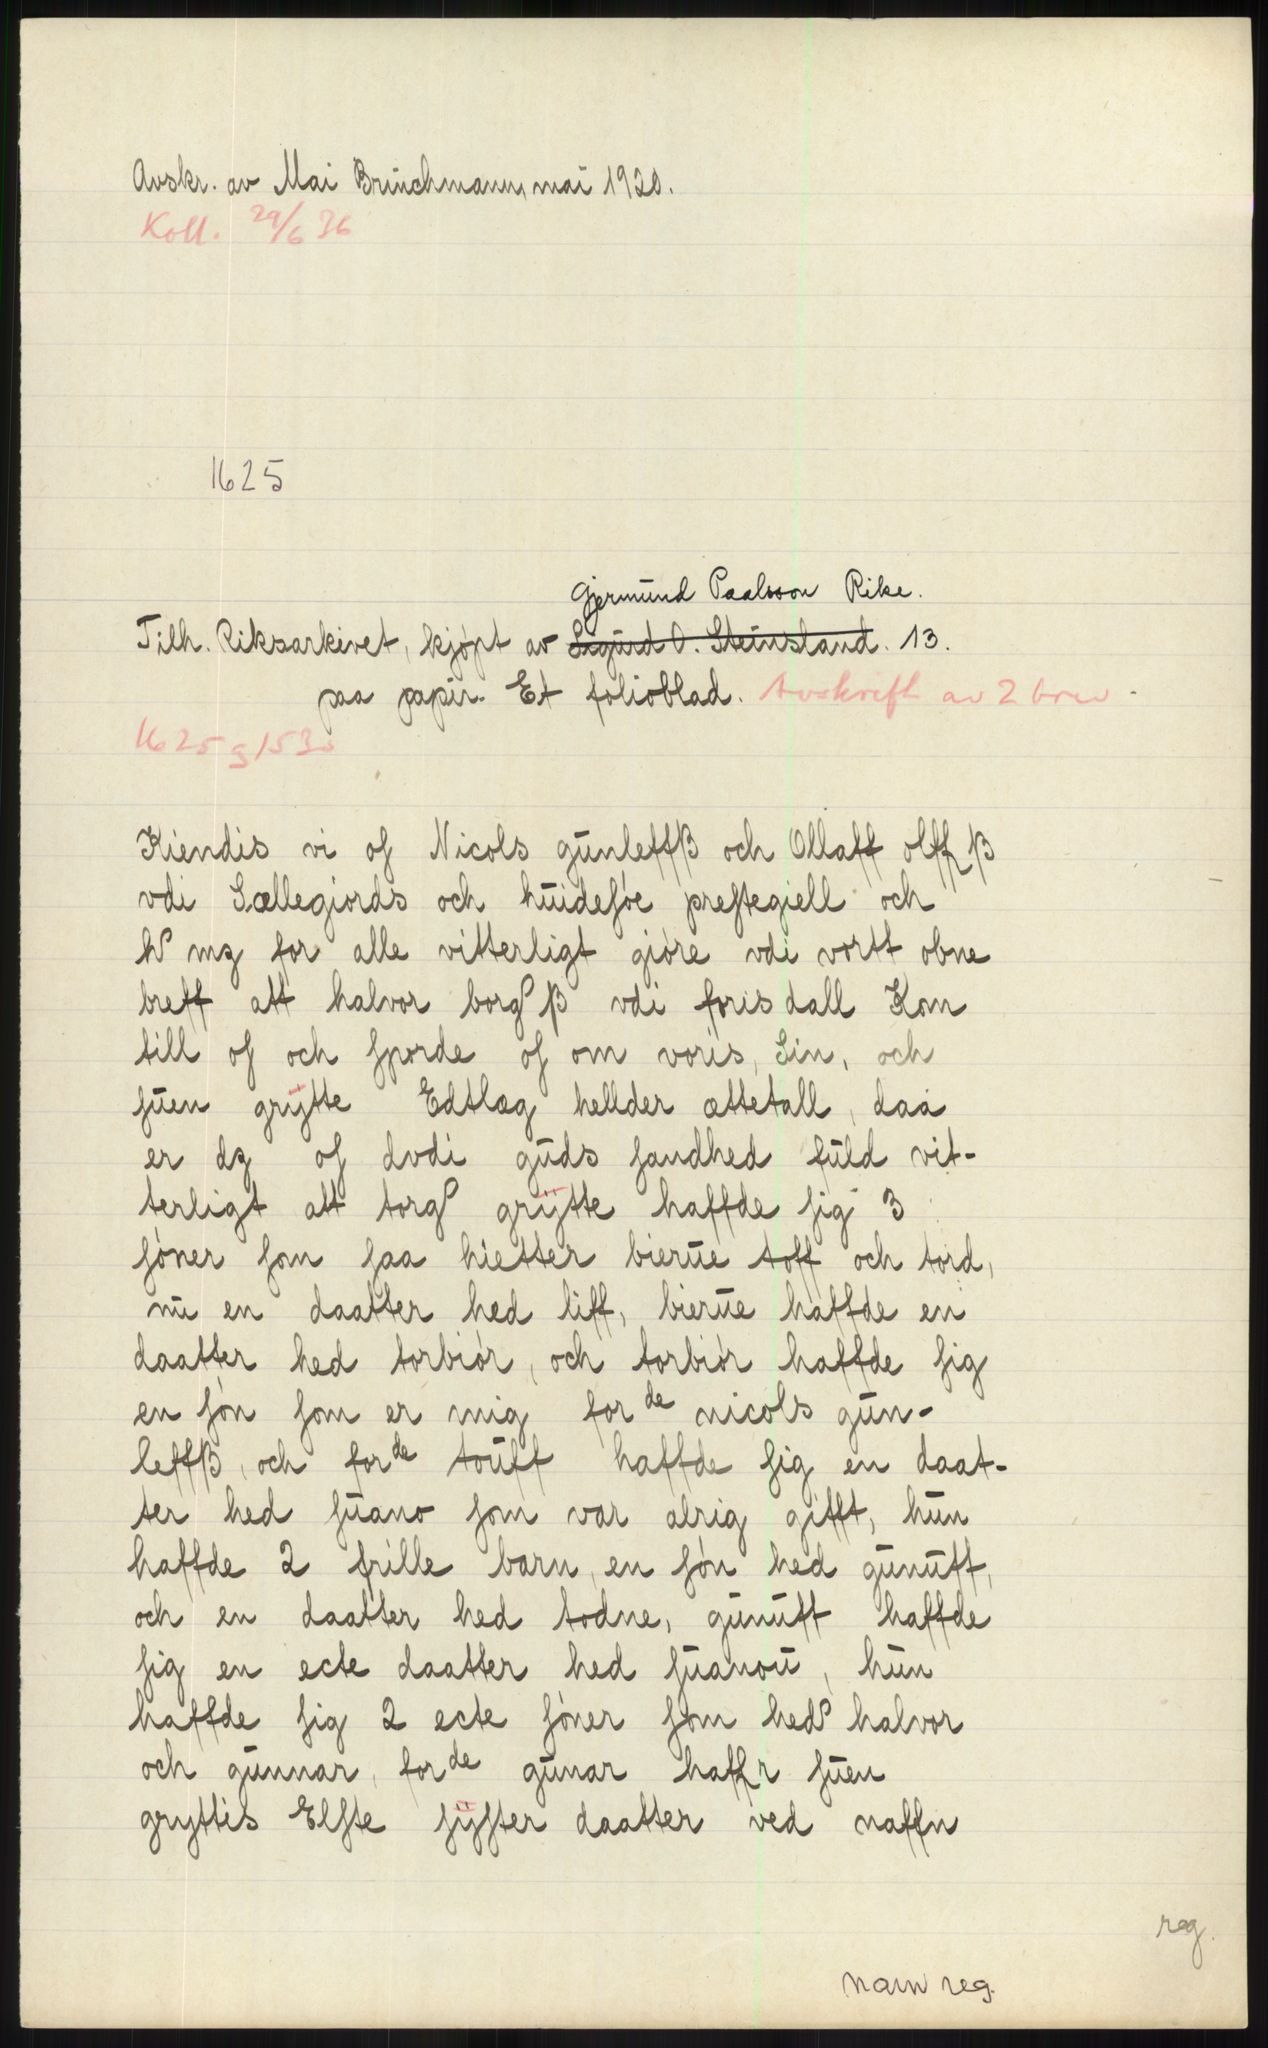 Avskr. av Mai Bruchmann, mai 1920.
Koll. 29/6 36
1625
Gjermund Paalsson Rike.
Tilh. Riksarkivet, kjøpt av Sigurd O. Steinsland. 13.
paa papir. Et folioblad. Avskrift av 2 brev
1625 g 153
Kiendis vi oſ Nicols gunleffß och Ollaff olff ß
vdi Sællegiords och huideſöe preſtegiell och
mz for alle vitterligt giøre vdi vortt obne
breff att halvor borg ß vdi foris dall Kom
till oſ och ſporde oſ om voris, Sin, och
ſuen grÿtte Edtlæg hellder ættetall, daa
er dz oſ dvdi guds ſandhed fuld vit-
terligt att torg grÿtte haffde ſig 3
ſöner ſom ſaa hietter bierue toff och tord,
nu en daatter hed liff, bierue haffde en
daatter hed torbiör, och torbiör haffde ſig
en ſön ſom er mig for de nicols gun-
leffß, och for de touff haffde ſig en daat-
ter hed ſuano ſom var alrig gifft, hun
haffde 2 frille barn, en ſön hed gunuff,
och en daatter hed todne, gunuff haffde
ſig en ecte daatter hed ſuanou, hun
haffde ſig 2 ecte ſöner ſom hed halvor
och gunnar, for de gunar haffr ſuen
gryttis Elſte ſÿſter daatter ved naffn
reg.
navnreg.